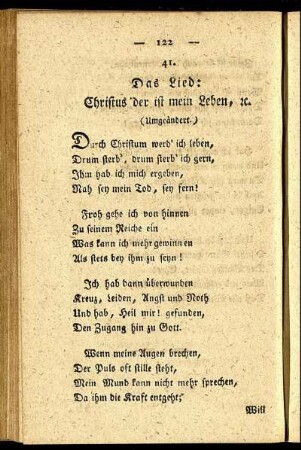 — 122 —
41.
Das Lied:
Christus der ist mein Leben, ꝛc.
(Umgeändert.)
Durch Christum werd' ich leben,
Drum sterb', drum sterb' ich gern,
Ihm hab ich mich ergeben,
Nah sey mein Tod, sey fern!
Froh gehe ich von hinnen
Zu seinem Reiche ein
Was kann ich mehr gewinnen
Als stets bey ihm zu seyn!
Ich hab dann überwunden
Kreuz, Leiden, Angst und Noth
Und hab, Heil mir! gefunden,
Den Zugang hin zu Gott.
Wenn meine Augen brechen,
Der Puls oft stille steht,
Mein Mund kann nicht mehr sprechen,
Da ihm die Kraft entgeht;
Will